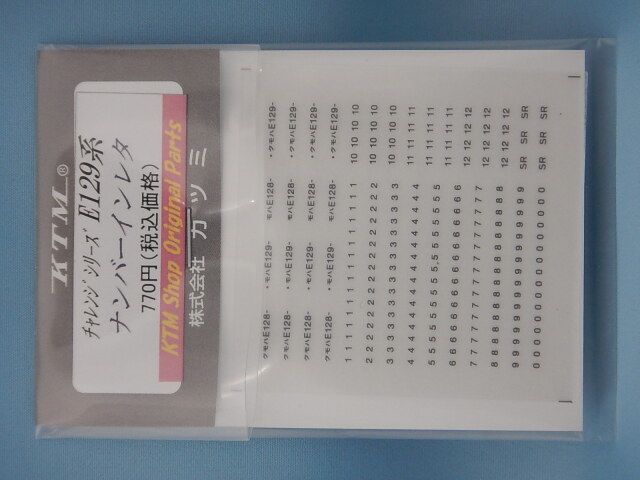 KTM®
チャレンジシリーズ E129系
ナンバーインレタ
770円(税込価格)
KTM Shop Original Parts
株式会社 カツミ
クモハE128- ・モハE129- モハE128- ・クモハE129-
クモハE128- ・モハE129- モハE128- ・クモハE129-
クモハE128- ・モハE129- モハE128- ・クモハE129-
クモハE128- ・モハE129- モハE128- ・クモハE129-
1 1 1 1 1 1 1 1 1 1 1 1 1 1 1 1 10 10 10 10
2 2 2 2 2 2 2 2 2 2 2 2 2 2 2 2 10 10 10 10
3 3 3 3 3 3 3 3 3 3 3 3 3 3 3 3 10 10 10 10
4 4 4 4 4 4 4 4 4 4 4 4 4 4 4 4 11 11 11 11
5 5 5 5 5 5 5 5 5 5 5 5 5 5 5 5 11 11 11 11
6 6 6 6 6 6 6 6 6 6 6 6 6 6 6 6 11 11 11 11
7 7 7 7 7 7 7 7 7 7 7 7 7 7 7 7 12 12 12 12
8 8 8 8 8 8 8 8 8 8 8 8 8 8 8 8 12 12 12 12
9 9 9 9 9 9 9 9 9 9 9 9 9 9 9 9 12 12 12 12
0 0 0 0 0 0 0 0 0 0 0 0 0 0 0 0 SR SR SR
SR SR SR